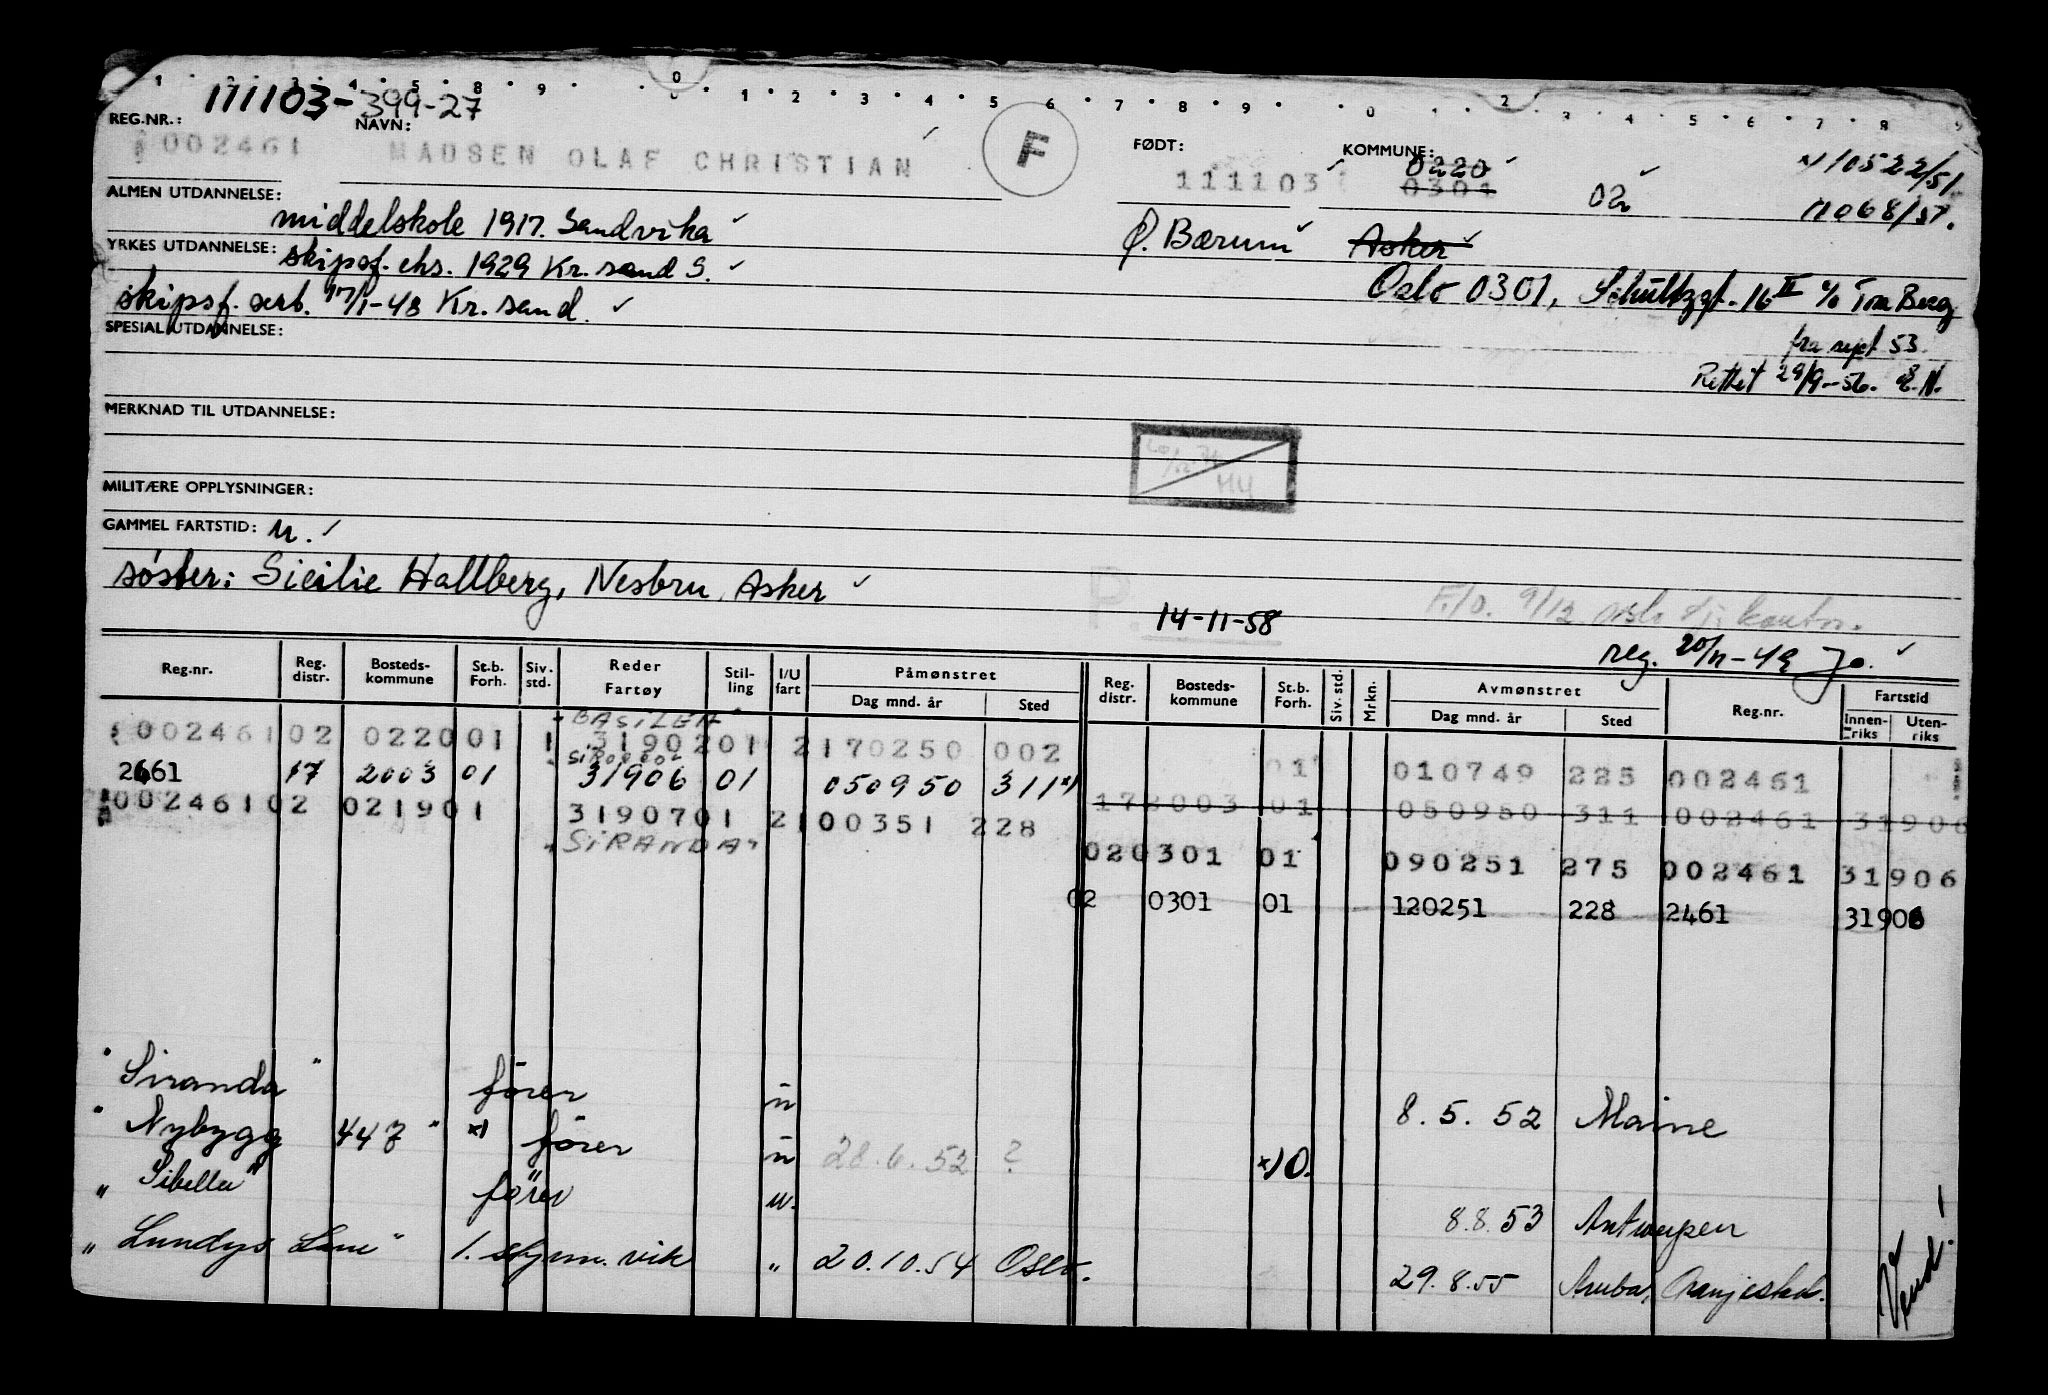 111103-399-27
REG.NR.: NAVN: FØDT: KOMMUNE: 0220
002461 MADSEN OLAF CHRISTIAN F 111103 0301 02 x) 10522/51
ALMEN UTDANNELSE: middelskole 1917. Sandvika Ø. Bærum Asker 11068/57.
YRKES UTDANNELSE: skipsf. eks. 1929 Kr. sand S.
skipsf. sert. 17/1-48 Kr. sand. Oslo 0301, Schultzgt. 16 II c/o Berg
SPESIAL UTDANNELSE: fra sept 53.
Rettet 29/9-56.
MERKNAD TIL UTDANNELSE:
MILITÆRE OPPLYSNINGER:
GAMMEL FARTSTID: u.
søster: Sicilie Hallberg, Nesbru, Asker
P. 14-11-58
F./O. 9/12
reg. 20/11-49 Jo.
Reg.nr. Reg. distr. Bosteds-kommune St.b. Forh. Siv. std. Reder Fartøy Stil-ling I/U fart Påmønstret Dag mnd. år Sted Reg. distr. Bosteds-kommune St.b. Forh. Siv. std. Mrkn. Avmønstret Dag mnd. år Sted Reg.nr. Fartstid Innen-riks Uten-riks
"BASILEA"
002461 02 0220 01 1 31902 01 2 170250 002 01 010749 225 002461
2461 17 2003 01 31906 01 050950 311 x)
172003 01 050950 311 002461 31906
002461 02 0219 01 31907 01 2 100351 228
"SIRANDA" 020301 01 090251 275 002461 31906
02 0301 01 120251 228 2461 31906
"Siranda" fører u 8.5.52 Maine
"Nybygg 447" x) fører u 28.6.52 ? x) O.
"Sibella" fører u. 8.8.53 Antwerpen
"Lundys Lane" 1. styrm. vik " 20.10.54 Oslo. 29.8.55 Aruba,
Vend!